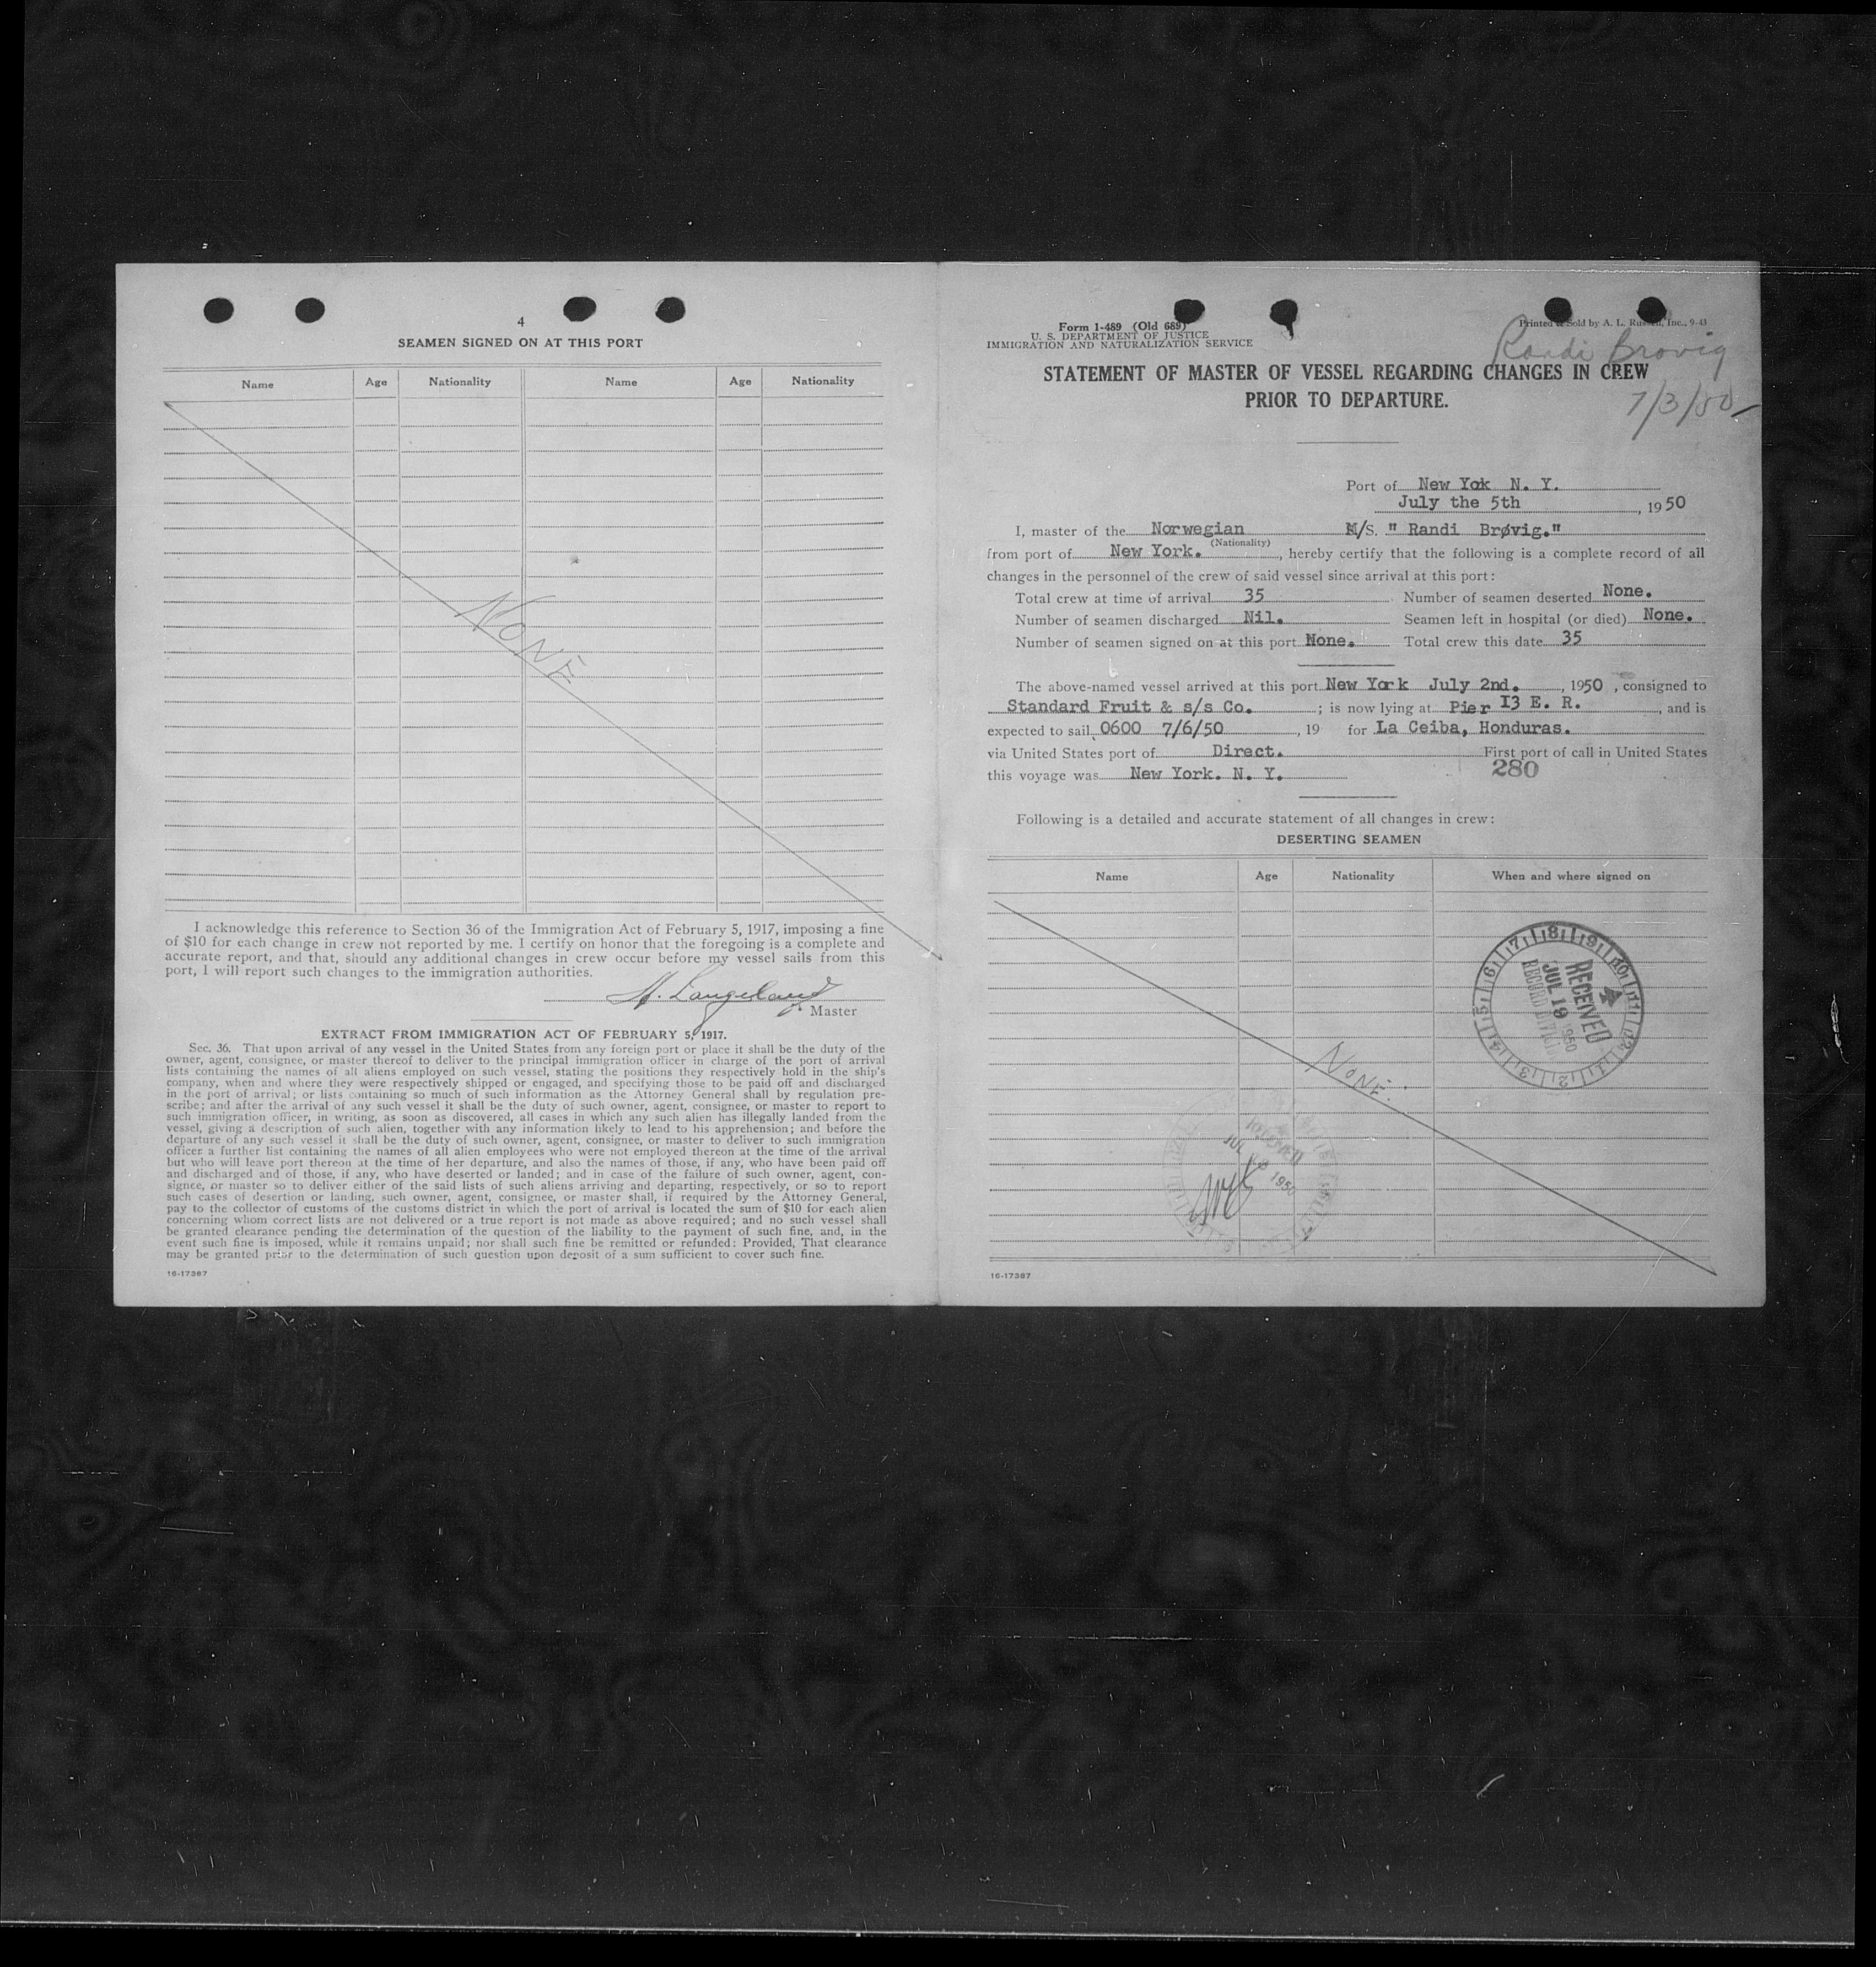 4
SEAMEN SIGNED ON AT THIS PORT
Name Age Nationality Name Age Nationality
NONE
I acknowledge this reference to Section 36 of the Immigration Act of February 5, 1917, imposing a fine
of $10 for each change in crew not reported by me. I certify on honor that the foregoing is a complete and
accurate report, and that, should any additional changes in crew occur before my vessel sails from this
port, I will report such changes to the immigration authorities.
H. Langeland
Master
EXTRACT FROM IMMIGRATION ACT OF FEBRUARY 5, 1917.
Sec. 36. That upon arrival of any vessel in the United States from any foreign port or place it shall be the duty of the
owner, agent, consignee, or master thereof to deliver to the principal immigration officer in charge of the port of arrival
lists containing the names of all aliens employed on such vessel, stating the positions they respectively hold in the ship's
company, when and where they were respectively shipped or engaged, and specifying those to be paid off and discharged
in the port of arrival; or lists containing so much of such information as the Attorney General shall by regulation pre-
scribe; and after the arrival of any such vessel it shall be the duty of such owner, agent, consignee, or master to report to
such immigration officer, in writing, as soon as discovered, all cases in which any such alien has illegally landed from the
vessel, giving a description of such alien, together with any information likely to lead to his apprehension; and before the
departure of any such vessel it shall be the duty of such owner, agent, consignee, or master to deliver to such immigration
officer a further list containing the names of all alien employees who were not employed thereon at the time of the arrival
but who will leave port thereon at the time of her departure, and also the names of those, if any, who have been paid off
and discharged and of those, if any, who have deserted or landed; and in case of the failure of such owner, agent, con-
signee, or master so to deliver either of the said lists of such aliens arriving and departing, respectively, or so to report
such cases of desertion or landing, such owner, agent, consignee, or master shall, if required by the Attorney General,
pay to the collector of customs of the customs district in which the port of arrival is located the sum of $10 for each alien
concerning whom correct lists are not delivered or a true report is not made as above required; and no such vessel shall
be granted clearance pending the determination of the question of the liability to the payment of such fine, and, in the
event such fine is imposed, while it remains unpaid; nor shall such fine be remitted or refunded: Provided, That clearance
may be granted prior to the determination of such question upon deposit of a sum sufficient to cover such fine.
16-17387
Form 1-489 (Old 689)
U. S. DEPARTMENT OF JUSTICE
IMMIGRATION AND NATURALIZATION SERVICE
Printed & Sold by A. L. Russell, Inc., 9-43
Randi Brovig
7/3/50
STATEMENT OF MASTER OF VESSEL REGARDING CHANGES IN CREW
PRIOR TO DEPARTURE.
Port of New Yok N. Y.
July the 5th, 1950
I, master of the Norwegian M/S. " Randi Brøvig."
(Nationality)
from port of New York., hereby certify that the following is a complete record of all
changes in the personnel of the crew of said vessel since arrival at this port:
Total crew at time of arrival 35 Number of seamen deserted None.
Number of seamen discharged Nil. Seamen left in hospital (or died) None.
Number of seamen signed on at this port None. Total crew this date 35
The above-named vessel arrived at this port New York July 2nd., 1950, consigned to
Standard Fruit & s/s Co.; is now lying at Pier I3 E. R., and is
expected to sail 0600 7/6/50, 19 for La Ceiba, Honduras.
via United States port of Direct. First port of call in United States
this voyage was New York. N. Y.
280
Following is a detailed and accurate statement of all changes in crew:
DESERTING SEAMEN
Name Age Nationality When and where signed on
RECEIVED
JUL 19 1950
RECORD DIVISION
NONE.
JUL 1950
16-17387